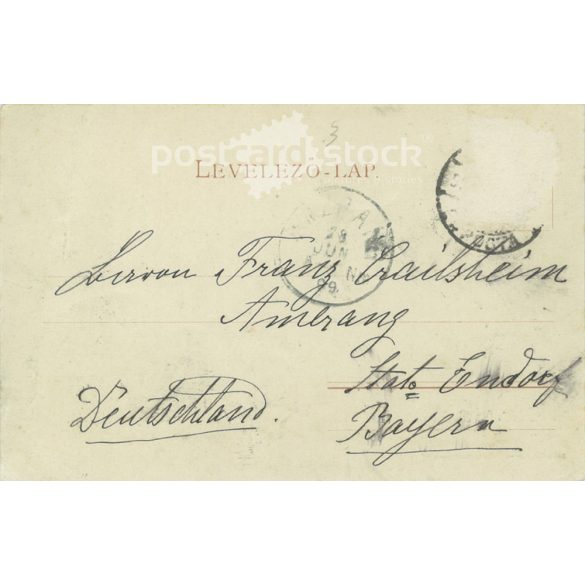 3
postcard.stock
LEVELEZŐ-LAP.
JUN
99.
POSTA
Franz Crailsheim
Amerang
Stat. Endorf
Deutschland.
Bayern